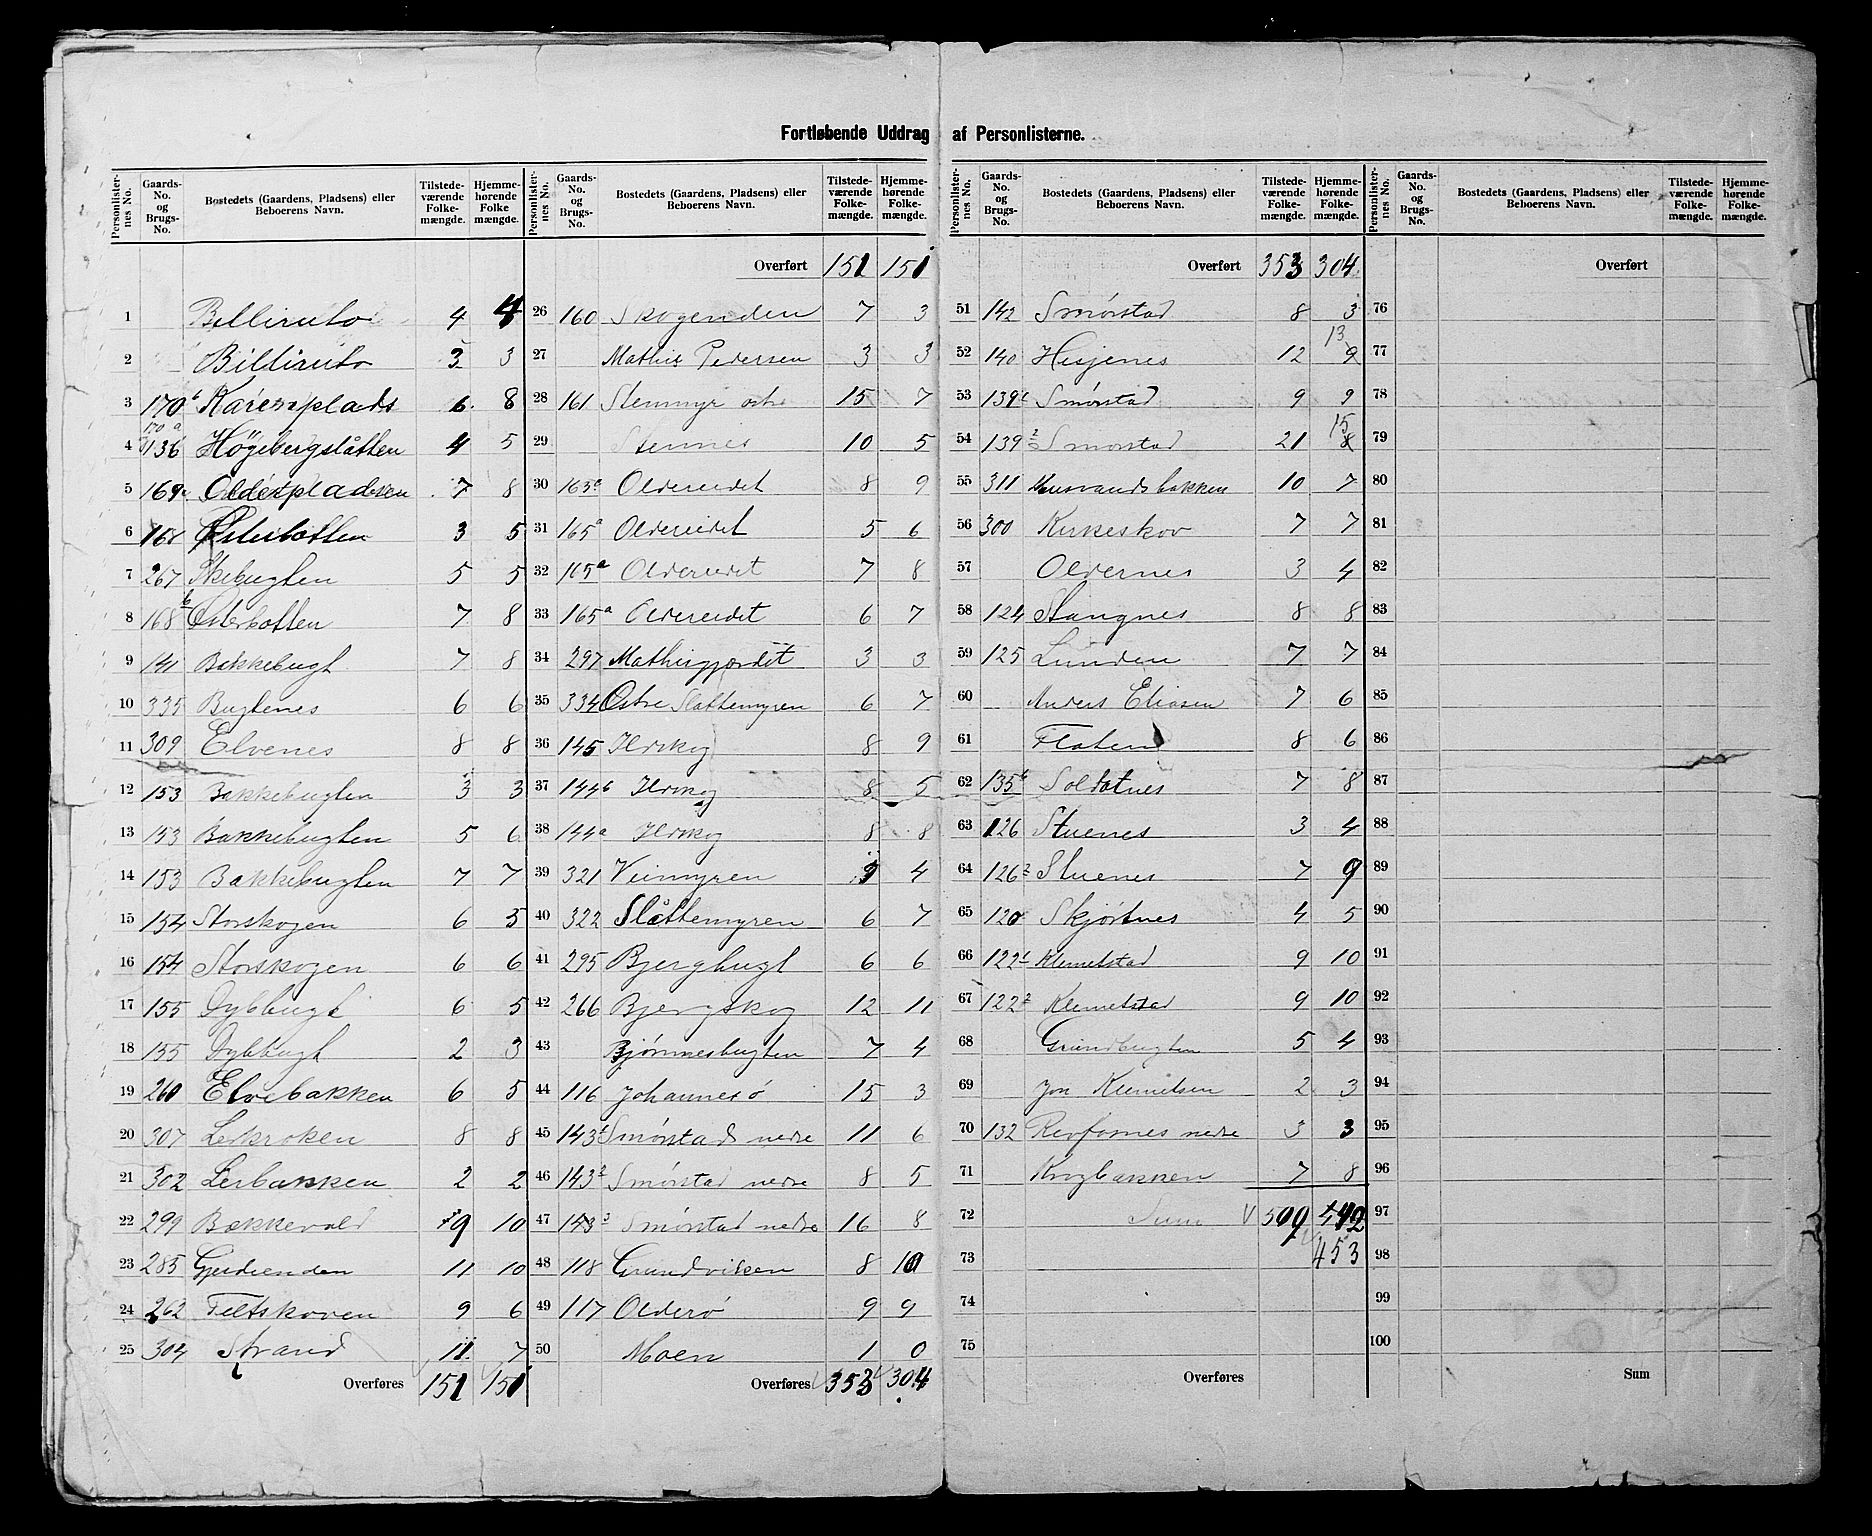 Fortløbende Uddrag af Personlisterne.
Personlisternes No. Gaards-No. og Brugs-No. Bostedets (Gaardens, Pladsens) eller Beboerens Navn. Tilstedeværende Folkemængde. Hjemmehørende Folkemængde.
1 4 4
2 3 3
3 170 b Karenplads 6 8
4 170 a 136 Högebergslåtten 4 5
5 169 Olderpladsen 7 8
6 168 Østerbotten 3 5
7 267 Skebugten 5 5
8 168 b Østerbotten 7 8
9 141 Bakkebugt 7 8
10 335 Bugtenes 6 6
11 309 Elvenes 8 8
12 153 Bakkebugten 3 3
13 153 Bakkebugten 5 6
14 153 Bakkebugten 7 7
15 154 Storskogen 6 5
16 154 Storskogen 6 6
17 155 Dybbugt 6 5
18 155 Dybbugt 2 3
19 260 Elvebakken 6 5
20 307 Lerkroken 8 8
21 302 Lerbakken 2 2
22 299 Bakkevold 9 10
23 285 Gjerdeenden 11 10
24 262 Feltskoven 9 6
25 304 Strand 11 7
Overføres 151 151
Personlisternes No. Gaards-No. og Brugs-No. Bostedets (Gaardens, Pladsens) eller Beboerens Navn. Tilstedeværende Folkemængde. Hjemmehørende Folkemængde.
Overført 151 151
26 160 Skogenden 7 3
27 Mathis Pedersen 3 3
28 161 Stenmyr østre 15 7
29 Stennes 10 5
30 163 a Oldereidet 8 9
31 165 a Oldereidet 5 6
32 165 a Oldereidet 7 8
33 165 a Oldereidet 6 7
34 297 Mathisgjordet 3 3
35 334 Østre Slattemyren 6 7
36 145 Ilskog 8 9
37 144 b Ilskog 8 5
38 144 a Ilskog 8 8
39 321 Veimyren 4
40 322 Slåttemyren 6 7
41 295 Bjergbugt 6 6
42 266 Bjergskog 12 11
43 Bjørnnesbugten 7 4
44 116 Johannesø 15 3
45 143 1 Smørstad nedre 11 6
46 143 2 Smørstad nedre 8 5
47 143 3 Smørstad nedre 16 8
48 118 Grundviken 8 10
49 117 Olderø 9 9
50 Moen 1 0
Overføres 353 304
Personlisternes No. Gaards-No. og Brugs-No. Bostedets (Gaardens, Pladsens) eller Beboerens Navn. Tilstedeværende Folkemængde. Hjemmehørende Folkemængde.
Overført 353 304
51 142 Smørstad 8 3
52 140 Hesjenes 12 13 9
53 139 1 Smørstad 9 9
54 139 2 Smorstad 21 15 8
55 311 10 7
56 300 Kirkeskov 7 7
57 Oldernes 3 4
58 124 Stangnes 8 8
59 125 Lunden 7 7
60 Anders Eliasen 7 6
61 Flaten 8 6
62 135 b Soldatnes 7 8
63 126 Stuenes 3 4
64 126 2 Stuenes 7 9
65 120 Skjørtnes 4 5
66 122 1 Klemetstad 9 10
67 122 2 Klemetstad 9 10
68 Grundbugten 5 4
69 Jon Klemetsen 2 3
70 132 Revfosnes nedre 3 3
71 Krogbakken 7 8
72 Sum 509
73 453
74
75
Overføres
Personlisternes No. Gaards-No. og Brugs-No. Bostedets (Gaardens, Pladsens) eller Beboerens Navn. Tilstedeværende Folkemængde. Hjemmehørende Folkemængde.
Overført
76
77
78
79
80
81
82
83
84
85
86
87
88
89
90
91
92
93
94
95
96
97
98
99
100
Sum